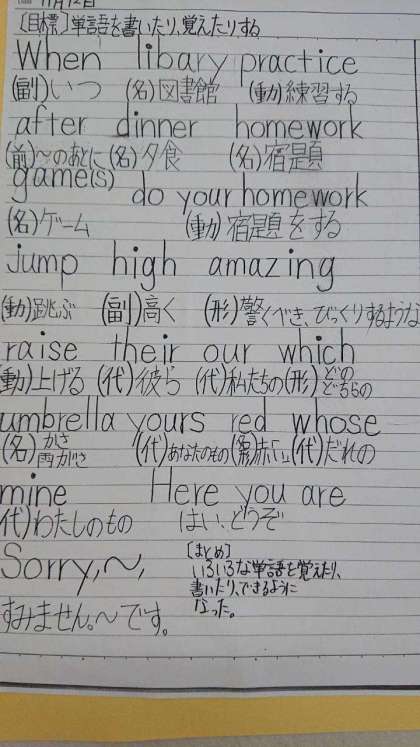 11月12日
[目標]単語を書いたり,覚えたりする
When libary practice
(副)いつ (名)図書館 (動)練習する
after dinner homework
(前)〜のあとに (名)夕食 (名)宿題
game(s) do your homework
(名)ゲーム (動)宿題をする
jump high amazing
(動)跳ぶ (副)高く (形)驚くべき、びっくりするような
raise their our which
(動)上げる (代)彼ら (代)私たちの (形)どの どちらの
umbrella yours red whose
(名)かさ 雨がさ (代)あなたのもの 赤い (代)だれの
mine Here you are
(代)わたしのもの はい、どうぞ
Sorry,〜,
すみません。〜です。
[まとめ]
いろいろな単語を覚えたり、
書いたり、できるように
なった。